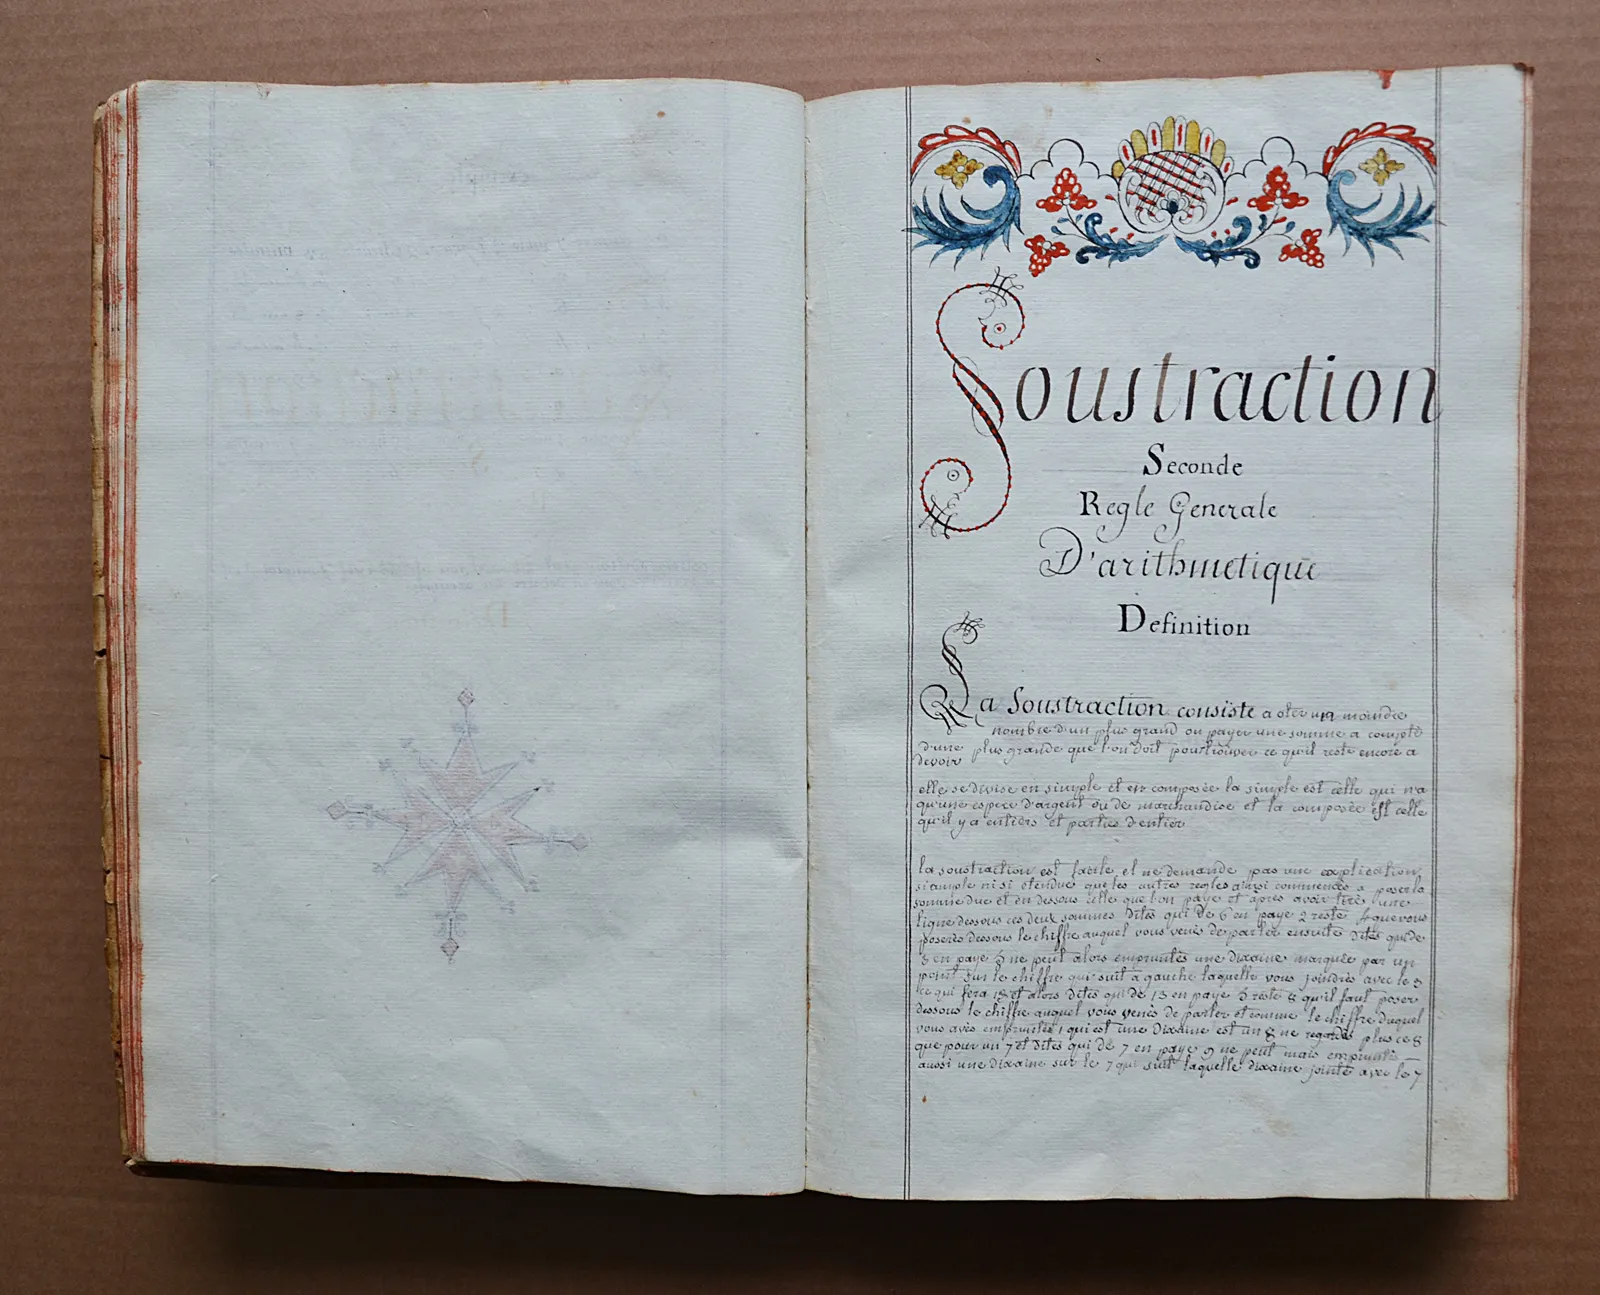 Soustraction
Seconde
Regle Generale
D'arithmetique
Definition
La Soustraction consiste a oter un moindre
nombre d'un plus grand ou payer une somme a compte
d'une plus grande que l'on doit pour trouver ce qu'il reste encore a
devoir
elle se divise en simple et en composée la simple est celle qui n'a
qu'une espece d'argent ou de marchandise et la composée est celle
qu'il y a entiers et parties d'entier
la soustraction est facile et ne demande pas une explication
si ample ni si etendue que les autres regles ainsi commencés a poser la
somme due et en dessous celle que l'on paye et après avoir tiré une
ligne dessous ces deux sommes dites qui de 6 en paye 2 reste 4 que vous
poserés dessous le chiffre auquel vous venés de parler ensuite dites qui de
3 en paye 5 ne peut alors empruntés une dixaine marquée par un
point sur le chiffre qui suit a gauche laquelle vous joindrés avec le 3
ce qui fera 13 et alors dites qui de 13 en paye 5 reste 8 qu'il faut poser
dessous le chiffre auquel vous venés de parler et comme le chiffre duquel
vous avés empruntés 1 qui est une dixaine est un 8 ne regardés plus ce 8
que pour un 7 et dites qui de 7 en paye 9 ne peut mais empruntés
aussi une dixaine sur le 7 qui suit laquelle dixaine jointe avec le 7